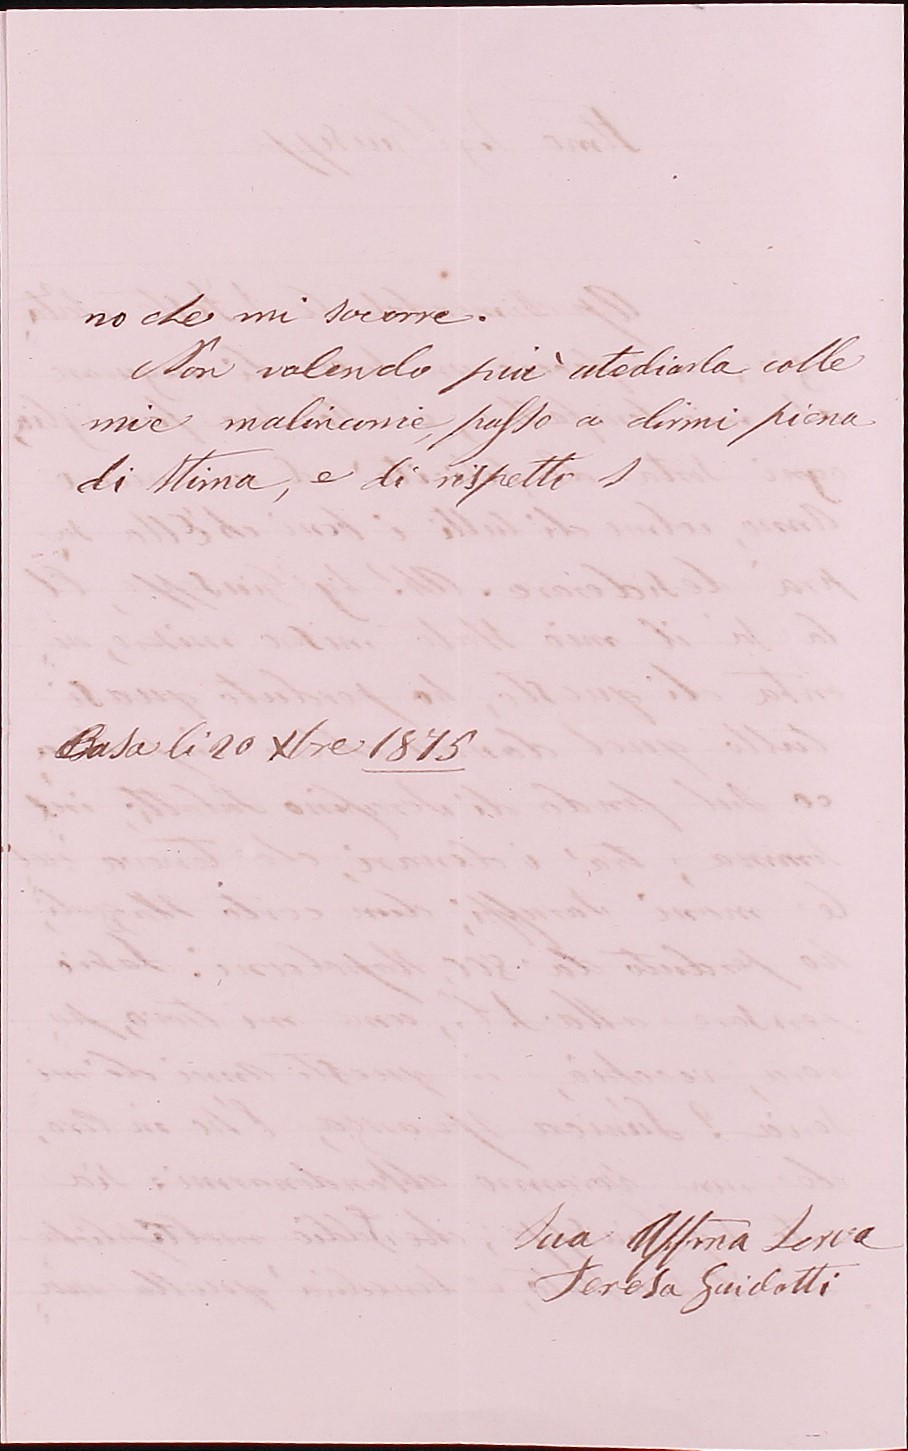 no che mi socorre.
Non volendo più atediarla colle
mie malinconie, passo a dirmi piena
di stima, e di rispetto
Casa li 20 Xbre 1875
Sua Affma Serva
Teresa Guidotti